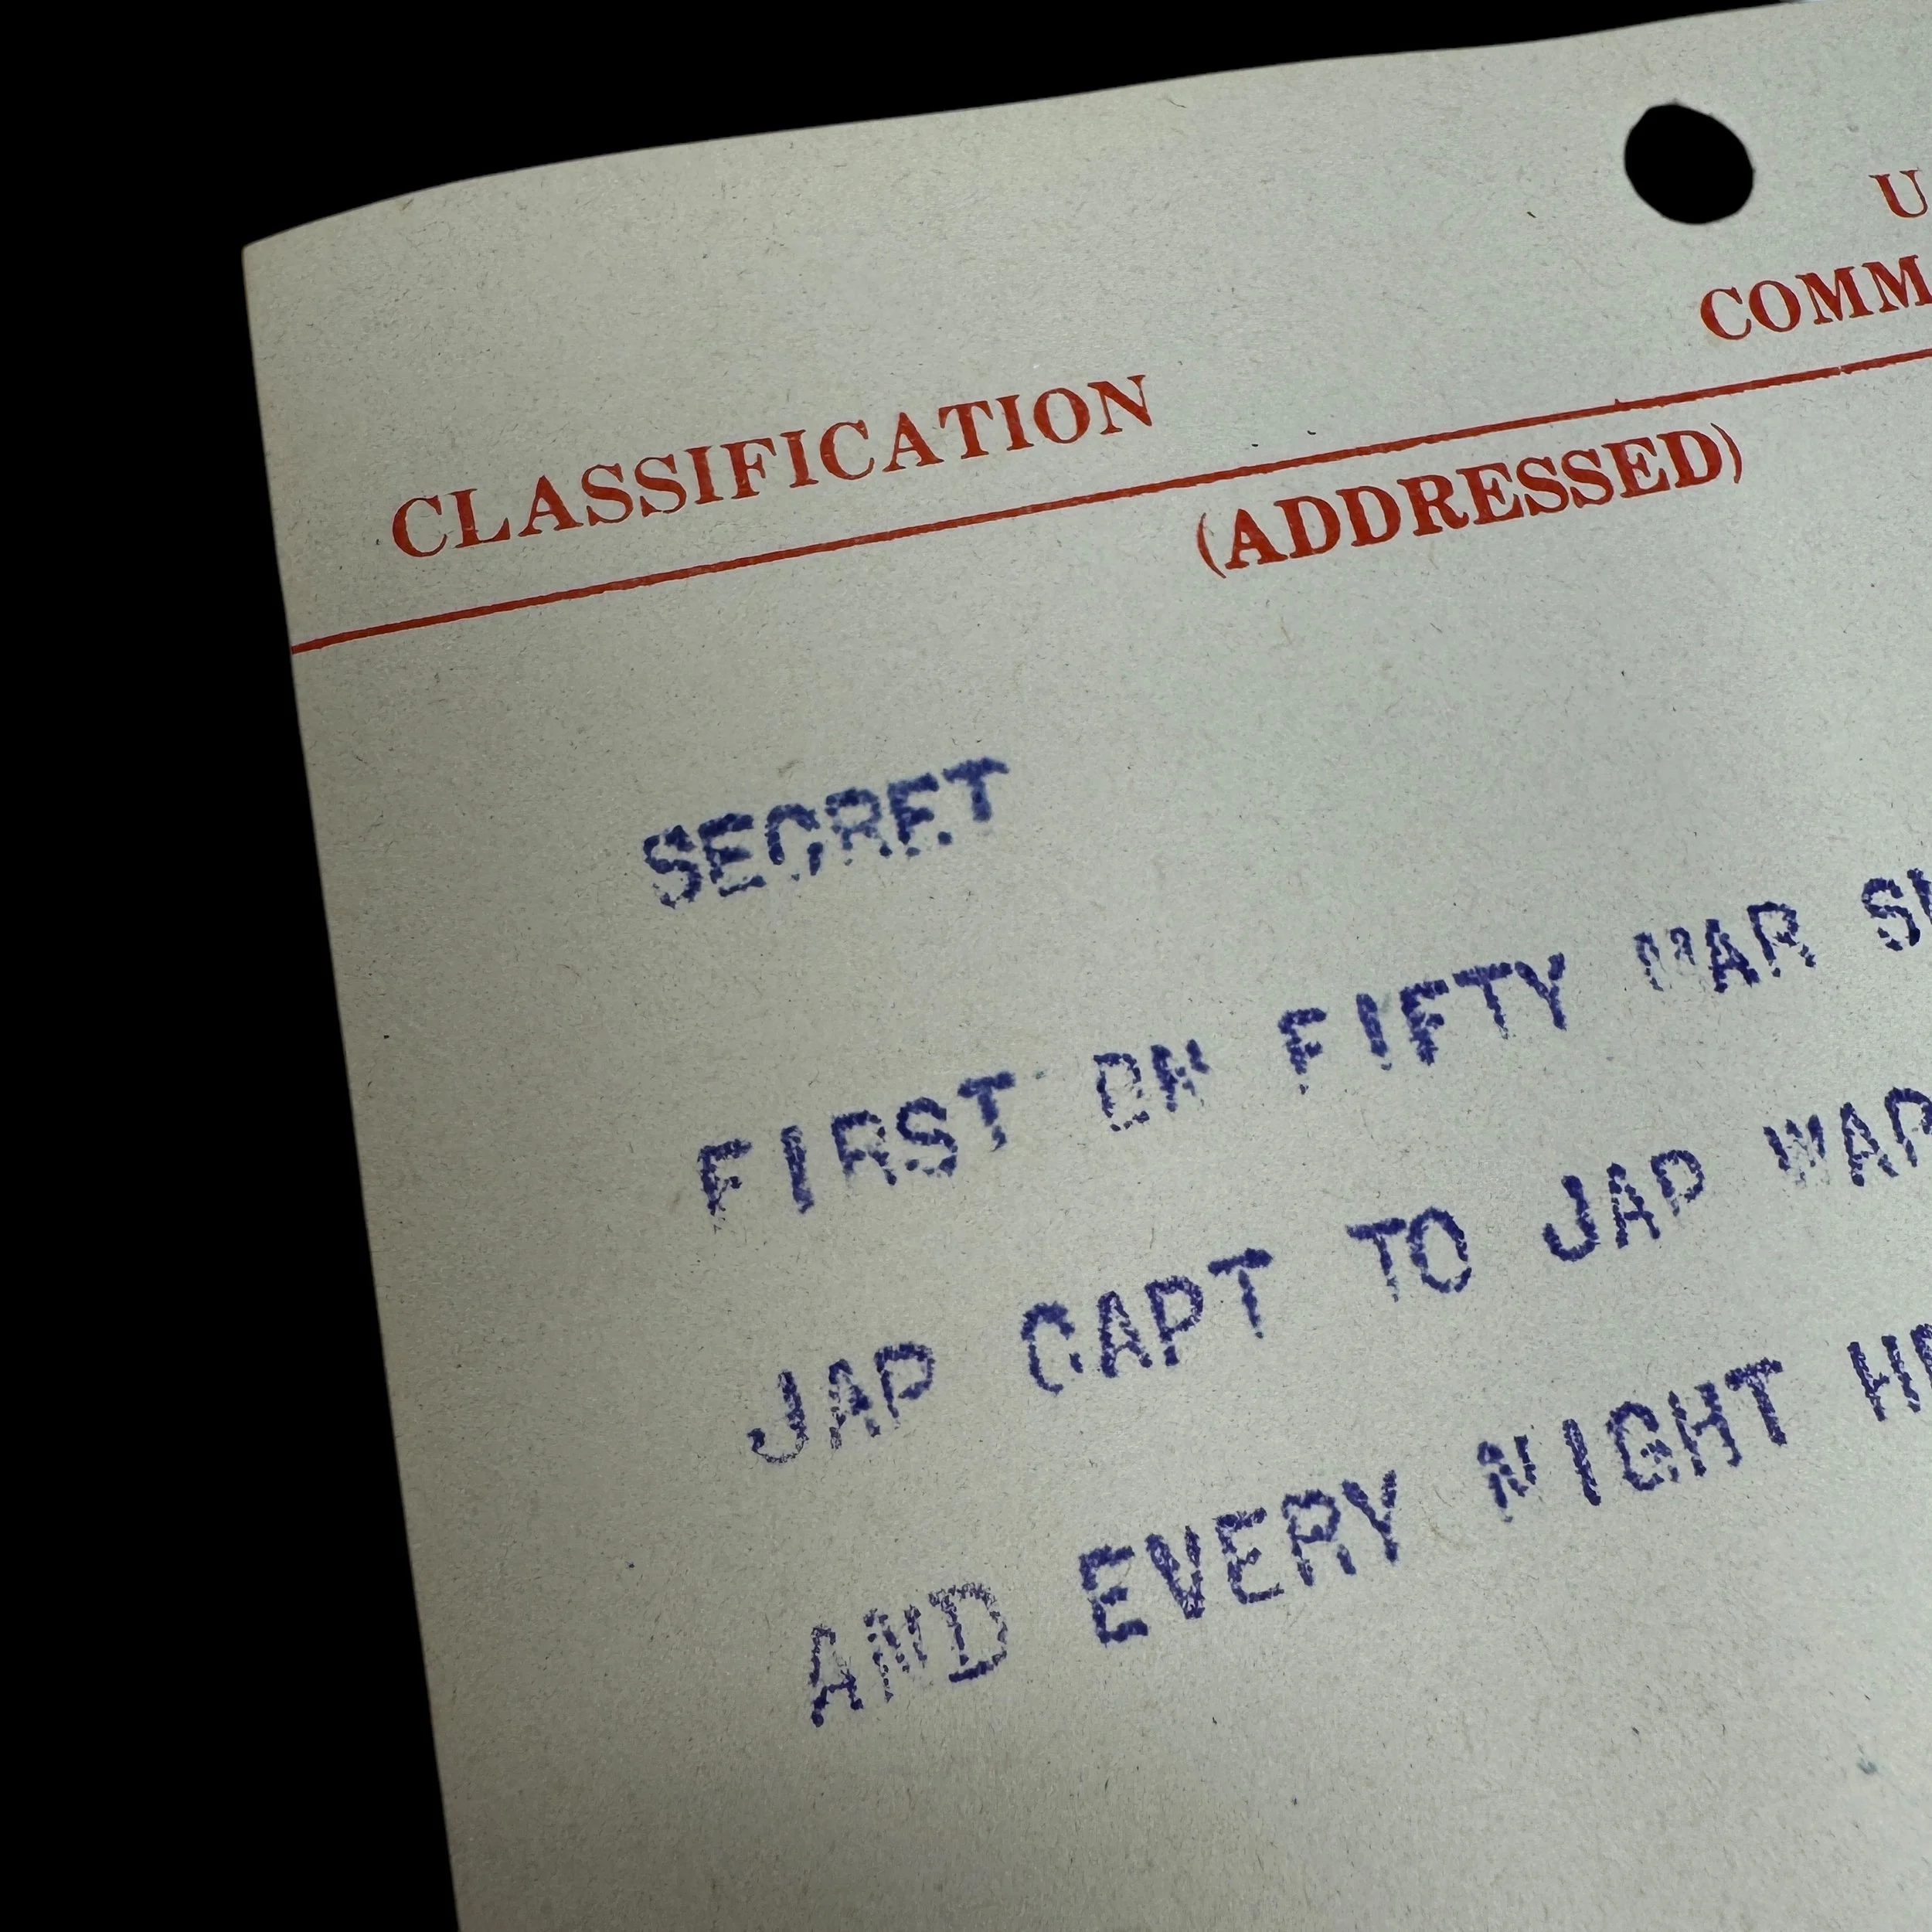 U
COMM
CLASSIFICATION
(ADDRESSED)
SECRET
FIRST ON FIFTY WAR
JAP CAPT TO JAP WAR
AND EVERY NIGHT